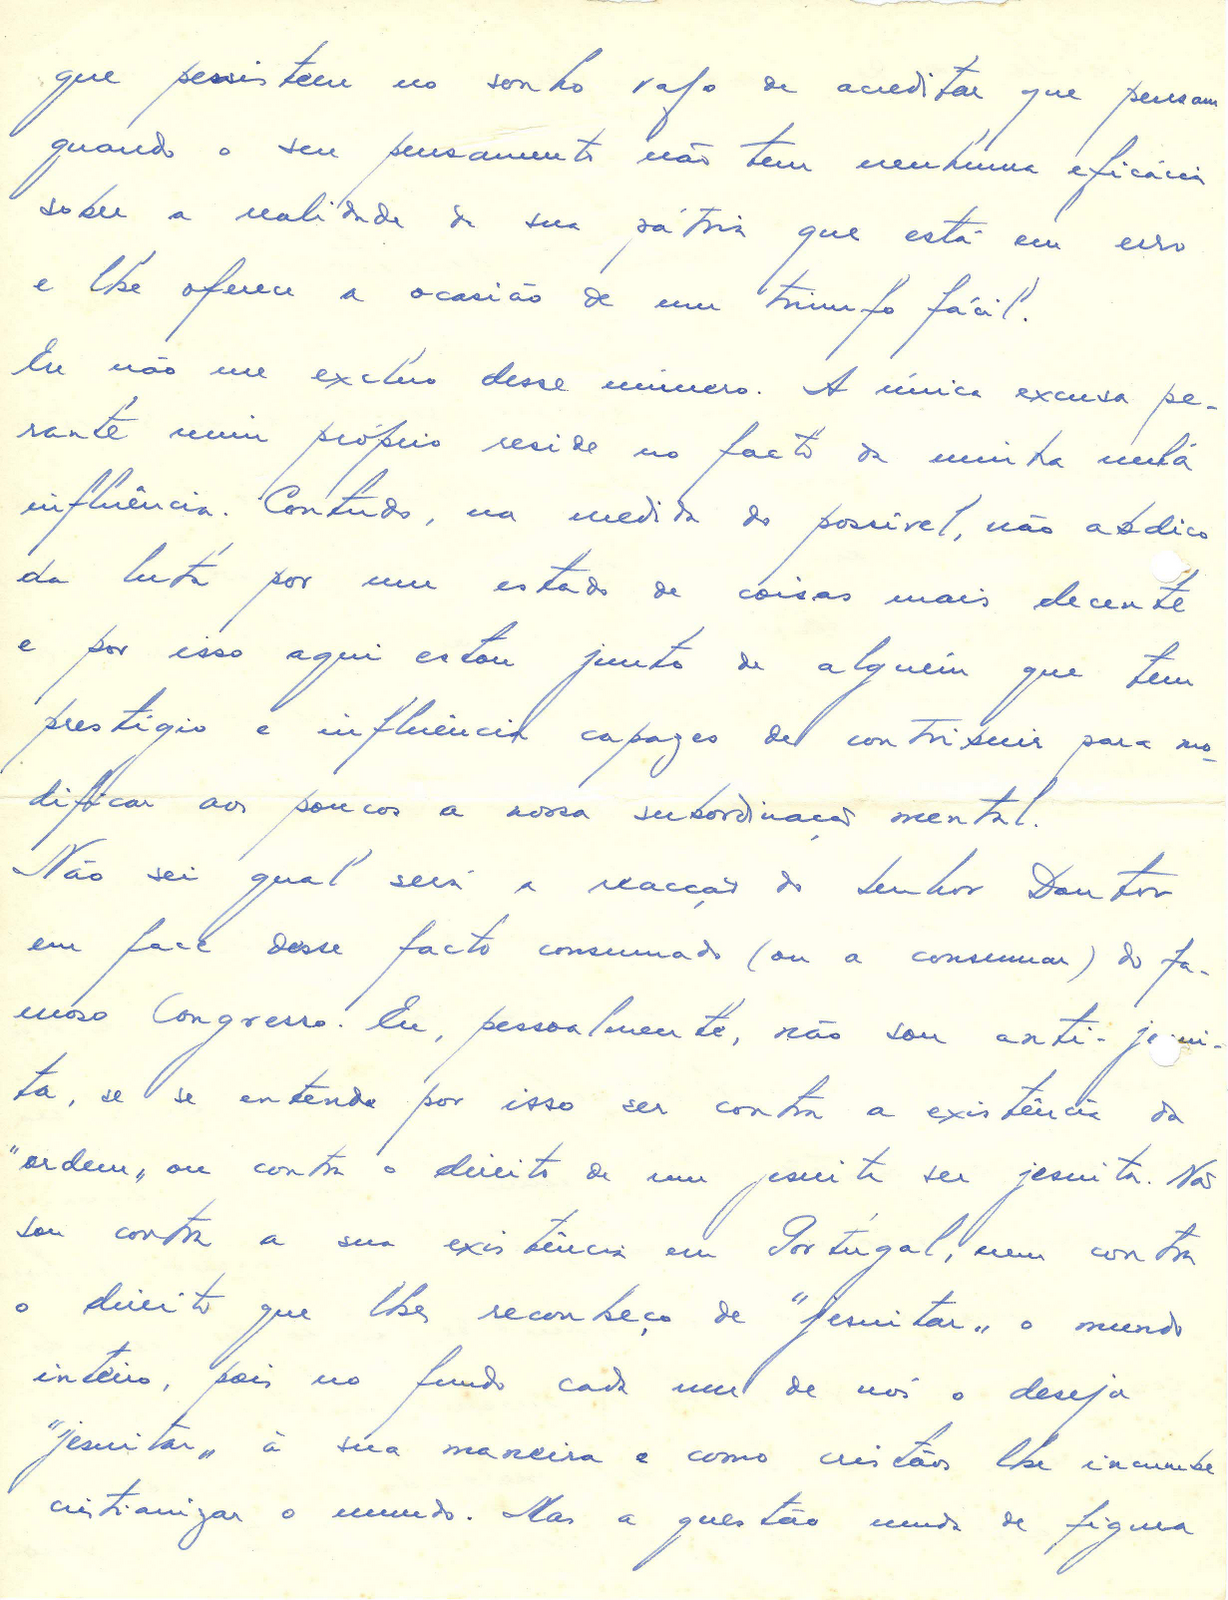 que persistem no sonho vago de acreditar que pensam
quando o seu pensamento não tem nenhuma eficácia
sobre a realidade da sua pátria que está em erro
e lhe oferece a ocasião de um triunfo fácil.
Eu não me excluo desse número. A única excusa pe-
rante mim próprio reside no facto da minha nula
influência. Contudo, na medida do possível, não abdico
da luta por um estado de coisas mais decente
e por isso aqui estou junto de alguém que tem
prestígio e influência capazes de contribuir para mo-
dificar aos poucos a nossa subordinação mental.
Não sei qual será a reacção do Senhor Doutor
em face desse facto consumado (ou a consumar) do fa-
moso Congresso. Eu, pessoalmente, não sou anti-jesui-
ta, se se entende por isso ser contra a existência da
"ordem" ou contra o direito de um jesuita ser jesuita. Não
sou contra a sua existência em Portugal, nem contra
o direito que lhes reconheço de "jesuitar" o mundo
inteiro, pois no fundo cada um de nós o deseja
"jesuitar" à sua maneira e como cristãos lhe incumbe
cristianizar o mundo. Mas a questão muda de figura